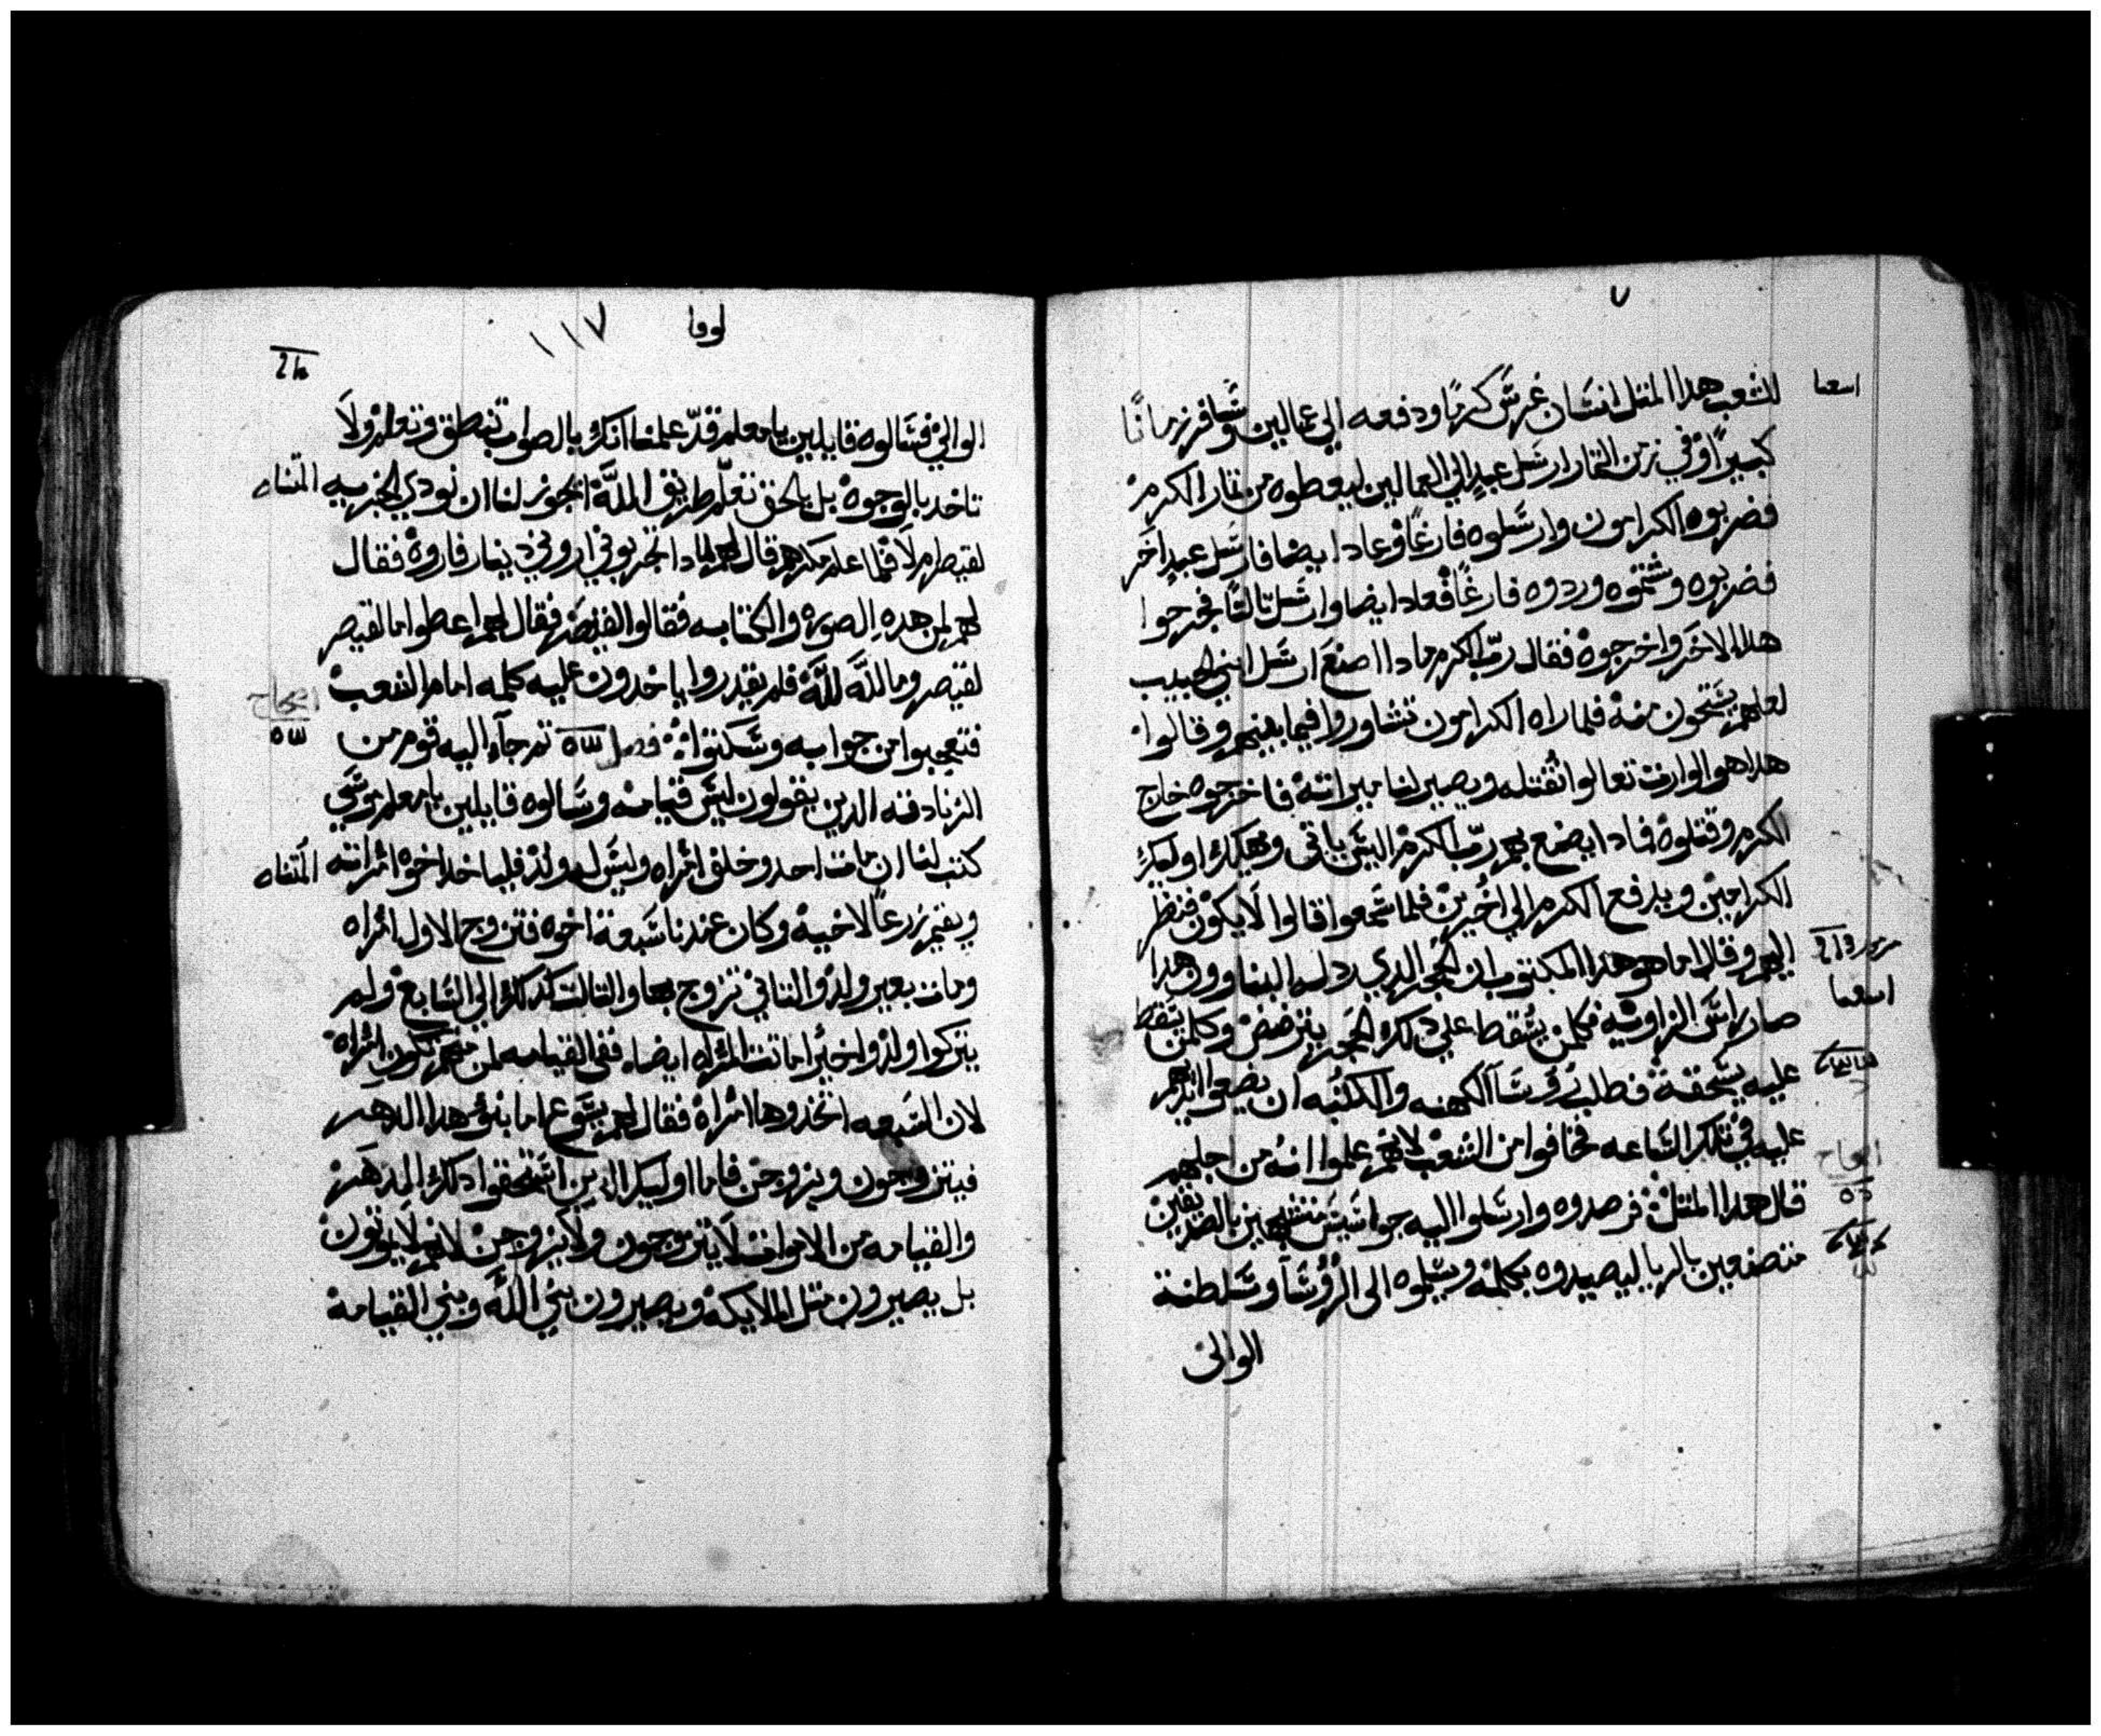 ٧
اسعيا
للشعب هدا المتل انسَان غرسَ كرمًا ودفعه الي عمالين وسَافر زمانًا
كبيرًا وفي زمن التمار ارسَل عبدٍ الي العمالين ليعطوه من تمار الكرم
فضربوه الكرامون وارسَلوه فارغًا وعاد ايضا فارسَل عبدٍ اخَر
فضربوه وشتموه وردوه فارغًا فعاد ايضا وارسَل تالتًا فجرحوا
هدا الاخَر واخرجوه فقال ربّ الكرم مادا اصنعَ ارسَل ابني الحبيب
لعلهم يسَتحون منهُ فلما راه الكرامون تشاوروا فيما بينهم وقالوا
هدا هو الوارت تعالوا نُقتله ويصير لنا ميراته فاخرجوه خارج
الكرم وقتلوهُ فمادا يصنع بهم ربّ الكرم اليسَ ياتى ويهلك اوليك
الكرامين ويدفع الكرم الي اخُرين فلما سَمعوا قالوا لَا يكوْن فنظر
اليهم وقال اما هو هدا المكتوب ان الحجر الدي ردله البناوون هدا
اسعيا
صار راسَ الزاويه فكلمن يسُقط علي دلك الحجَر يترضض وكلمن يسَقط
عليه يسَحقهُ فطلب رُوسَآ الكهنه والكتُبه ان يضعوا ايديهم
عليه في تلك السَاعه فخافوا من الشعبْ لانهم علموا انهُ من اجلهم
قال هدا المتل فرصدوه وارسَلوا اليه جواسَيسَ متشبهين بالصديقين
متصنعين بالريا ليصيدوه بكلمه ويسَلموه الى الرُؤسَآ وسَلطنة
الوالى
لوقا
١١٧
الواليْ فسَالوه قايلين يا معلم قدّ علمنا انك بالصواب تنطق وتعلم ولَا
تاخد بالوجوهْ بل بالحق تعلّم طريق اللّهَ ايجوز لنا ان نودي الجزيه
لقيصر ام لَا فلما علم مكرهم قال لهم لمادا تجربوني اروني دينار فاروهْ فقال
لهم لمن هده الصورهْ والكتابه فقالوا لقيصَر فقال لهم اعطوا ما لقيصر
لقيصر وما للّهَ للّهَ فلم يقدروا ياخدون عليه كلمه امام الشعبْ
فتعجبوا من جوابه وسَكتوا فصل تم جآء اليه قوم من
الزنادقه الدين يقولون ليسَ قيامه وسَالوه قايلين يا معلم موسَي
كتب لنا ان مات احد وخلف امُراه وليسَ له ولدْ فلياخد اخوهْ امُراته
ويقيم زرعًا لاخيهْ وكان عندنا سَبعة اخوه فتزوج الاول امُراه
ومات بغير ولدْ والتاني تزوج بها والتالت كدلك الي السَابعْ ولم
يتركوا ولدْ واخيرًا ماتت المرُاه ايضا ففى القيامه لمن منهم تكون امُراةً
لان السَبعه اتخدوها امُراهْ فقال لهم يسَوع اما بنو هدا الدهر
فيتزوجون ويزوجن فاما اوليك الدين استَحقوا دلك الدهَر
والقيامه من الاموات لَا يتزوجون ولَا يزوجن لانهم لَا يموتون
بل يصيرون متل الملايكة ويصيرون بني اللّهَ وبني القيامهْ